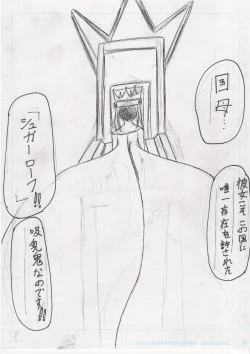 国母…
彼女こそこの国に
唯一存在を許された
「シュガーローフ」!!
吸乳鬼なのです!!